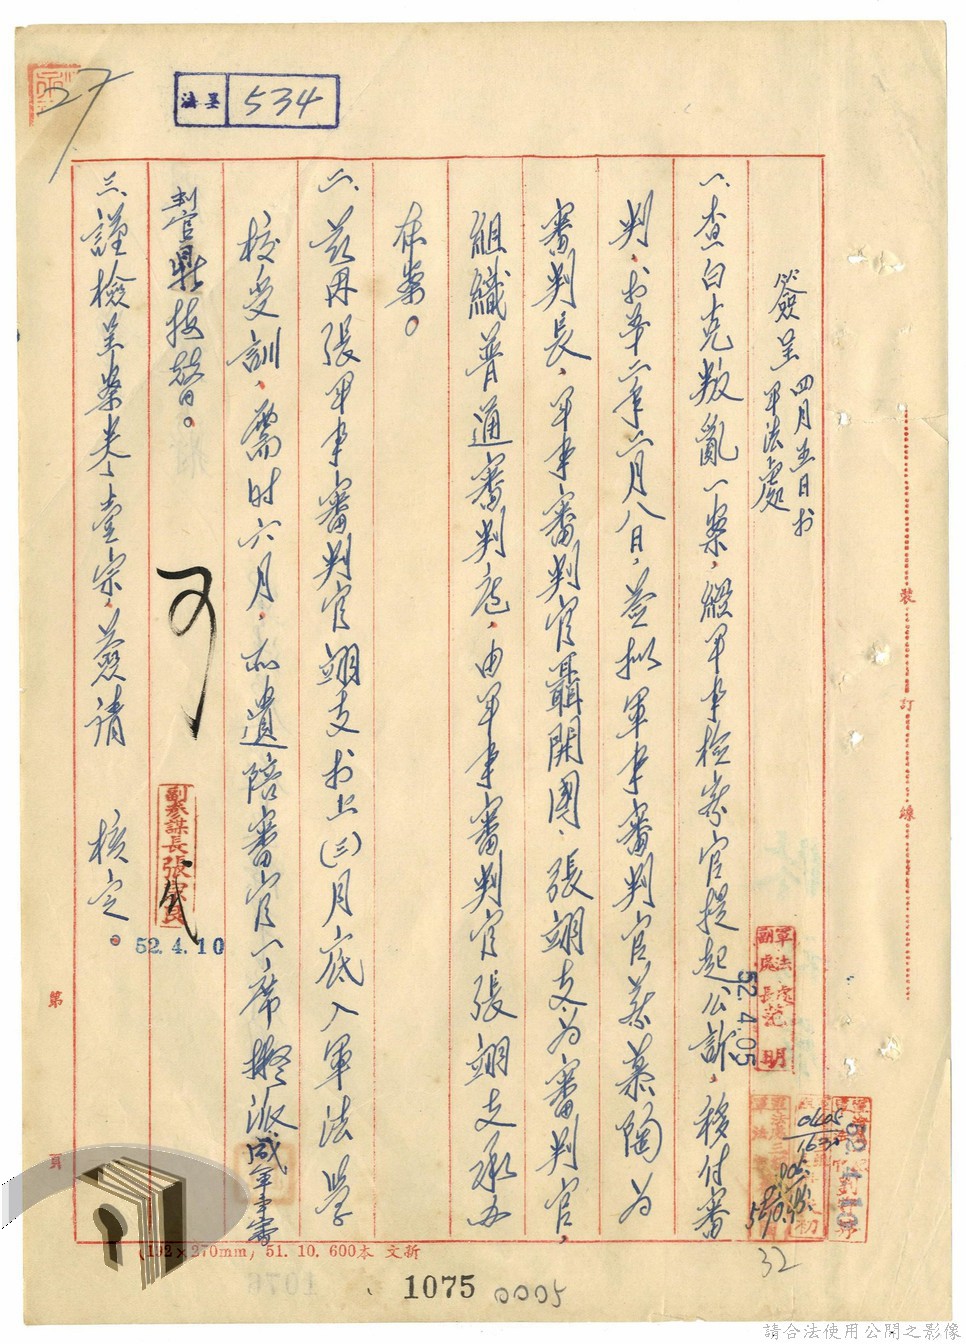 簽呈 四月五日於
軍法處
一、查白克叛亂一案，經軍事檢察官提起公訴，移付審
判，於本年二月八日，簽擬軍事審判官蔡慕陶為
審判長，軍事審判官聶開國、張翊支為審判官，
組織普通審判庭，由軍事審判官張翊支承办
在案。
二、茲因張軍事審判官翊支於上(三)月底入軍法學
校受訓，需时六月，所遺陪審官一席擬派咸軍事審
判官鼎接替。
三、謹檢呈案卷壹宗，簽請 核定。
可
副參謀長張
52.4.10
軍法處副處長范明
52.4.05
呈法 534
27
裝 訂 線
第 頁
(192×270mm) 51. 10. 600本 文新
1075 0005
32
請合法使用公開之影像